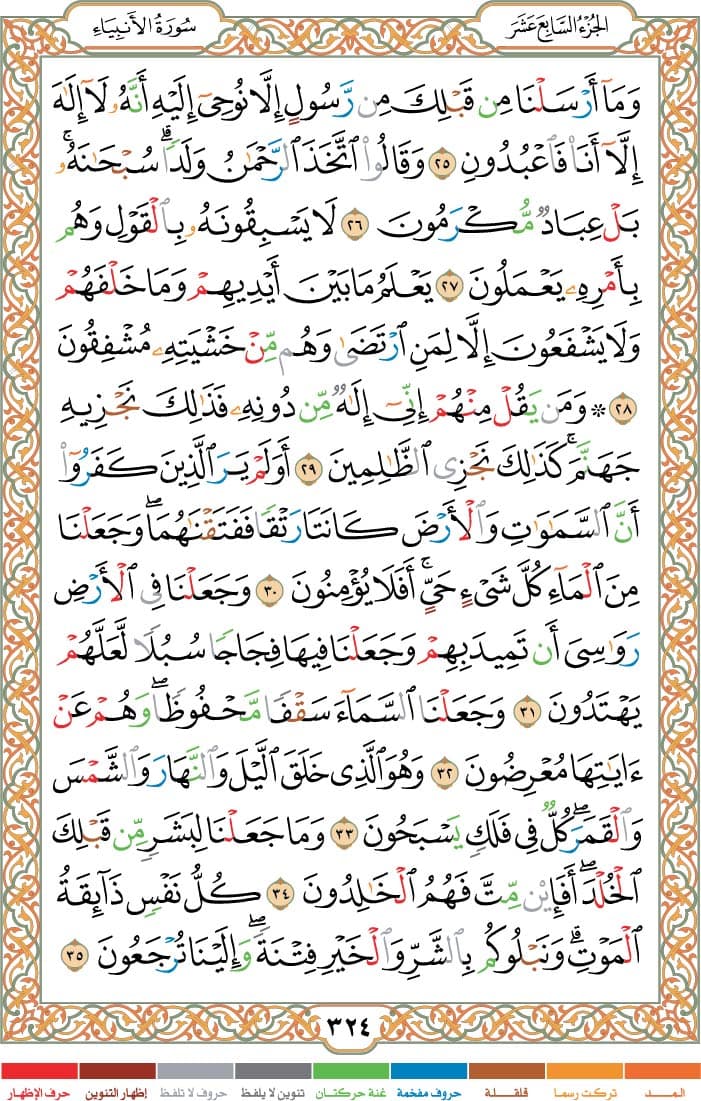 الجُزْءُ السَّابِعَ عَشَرَ
سُورَةُ الأَنبِيَاءِ
وَمَآ أَرْسَلْنَا مِن قَبْلِكَ مِن رَّسُولٍ إِلَّا نُوحِىٓ إِلَيْهِ أَنَّهُۥ لَآ إِلَٰهَ
إِلَّآ أَنَا۠ فَٱعْبُدُونِ ٢٥ وَقَالُوا۟ ٱتَّخَذَ ٱلرَّحْمَٰنُ وَلَدًا ۗ سُبْحَٰنَهُۥ ۚ
بَلْ عِبَادٌ مُّكْرَمُونَ ٢٦ لَا يَسْبِقُونَهُۥ بِٱلْقَوْلِ وَهُم
بِأَمْرِهِۦ يَعْمَلُونَ ٢٧ يَعْلَمُ مَا بَيْنَ أَيْدِيهِمْ وَمَا خَلْفَهُمْ
وَلَا يَشْفَعُونَ إِلَّا لِمَنِ ٱرْتَضَىٰ وَهُم مِّنْ خَشْيَتِهِۦ مُشْفِقُونَ
٢٨ ۞ وَمَن يَقُلْ مِنْهُمْ إِنِّىٓ إِلَٰهٌ مِّن دُونِهِۦ فَذَٰلِكَ نَجْزِيهِ
جَهَنَّمَ ۚ كَذَٰلِكَ نَجْزِى ٱلظَّٰلِمِينَ ٢٩ أَوَلَمْ يَرَ ٱلَّذِينَ كَفَرُوٓا۟
أَنَّ ٱلسَّمَٰوَٰتِ وَٱلْأَرْضَ كَانَتَا رَتْقًا فَفَتَقْنَٰهُمَا ۖ وَجَعَلْنَا
مِنَ ٱلْمَآءِ كُلَّ شَىْءٍ حَىٍّ ۖ أَفَلَا يُؤْمِنُونَ ٣٠ وَجَعَلْنَا فِى ٱلْأَرْضِ
رَوَٰسِىَ أَن تَمِيدَ بِهِمْ وَجَعَلْنَا فِيهَا فِجَاجًا سُبُلًا لَّعَلَّهُمْ
يَهْتَدُونَ ٣١ وَجَعَلْنَا ٱلسَّمَآءَ سَقْفًا مَّحْفُوظًا ۖ وَهُمْ عَنْ
ءَايَٰتِهَا مُعْرِضُونَ ٣٢ وَهُوَ ٱلَّذِى خَلَقَ ٱلَّيْلَ وَٱلنَّهَارَ وَٱلشَّمْسَ
وَٱلْقَمَرَ ۖ كُلٌّ فِى فَلَكٍ يَسْبَحُونَ ٣٣ وَمَا جَعَلْنَا لِبَشَرٍ مِّن قَبْلِكَ
ٱلْخُلْدَ ۖ أَفَإِي۟ن مِّتَّ فَهُمُ ٱلْخَٰلِدُونَ ٣٤ كُلُّ نَفْسٍ ذَآئِقَةُ
ٱلْمَوْتِ ۗ وَنَبْلُوكُم بِٱلشَّرِّ وَٱلْخَيْرِ فِتْنَةً ۖ وَإِلَيْنَا تُرْجَعُونَ ٣٥
٣٢٤
المــد تركت رسما قلقلة حروف مفخمة غنة حركتان تنوين لا يلفظ حروف لا تلفظ إظهار التنوين حرف الإظهار